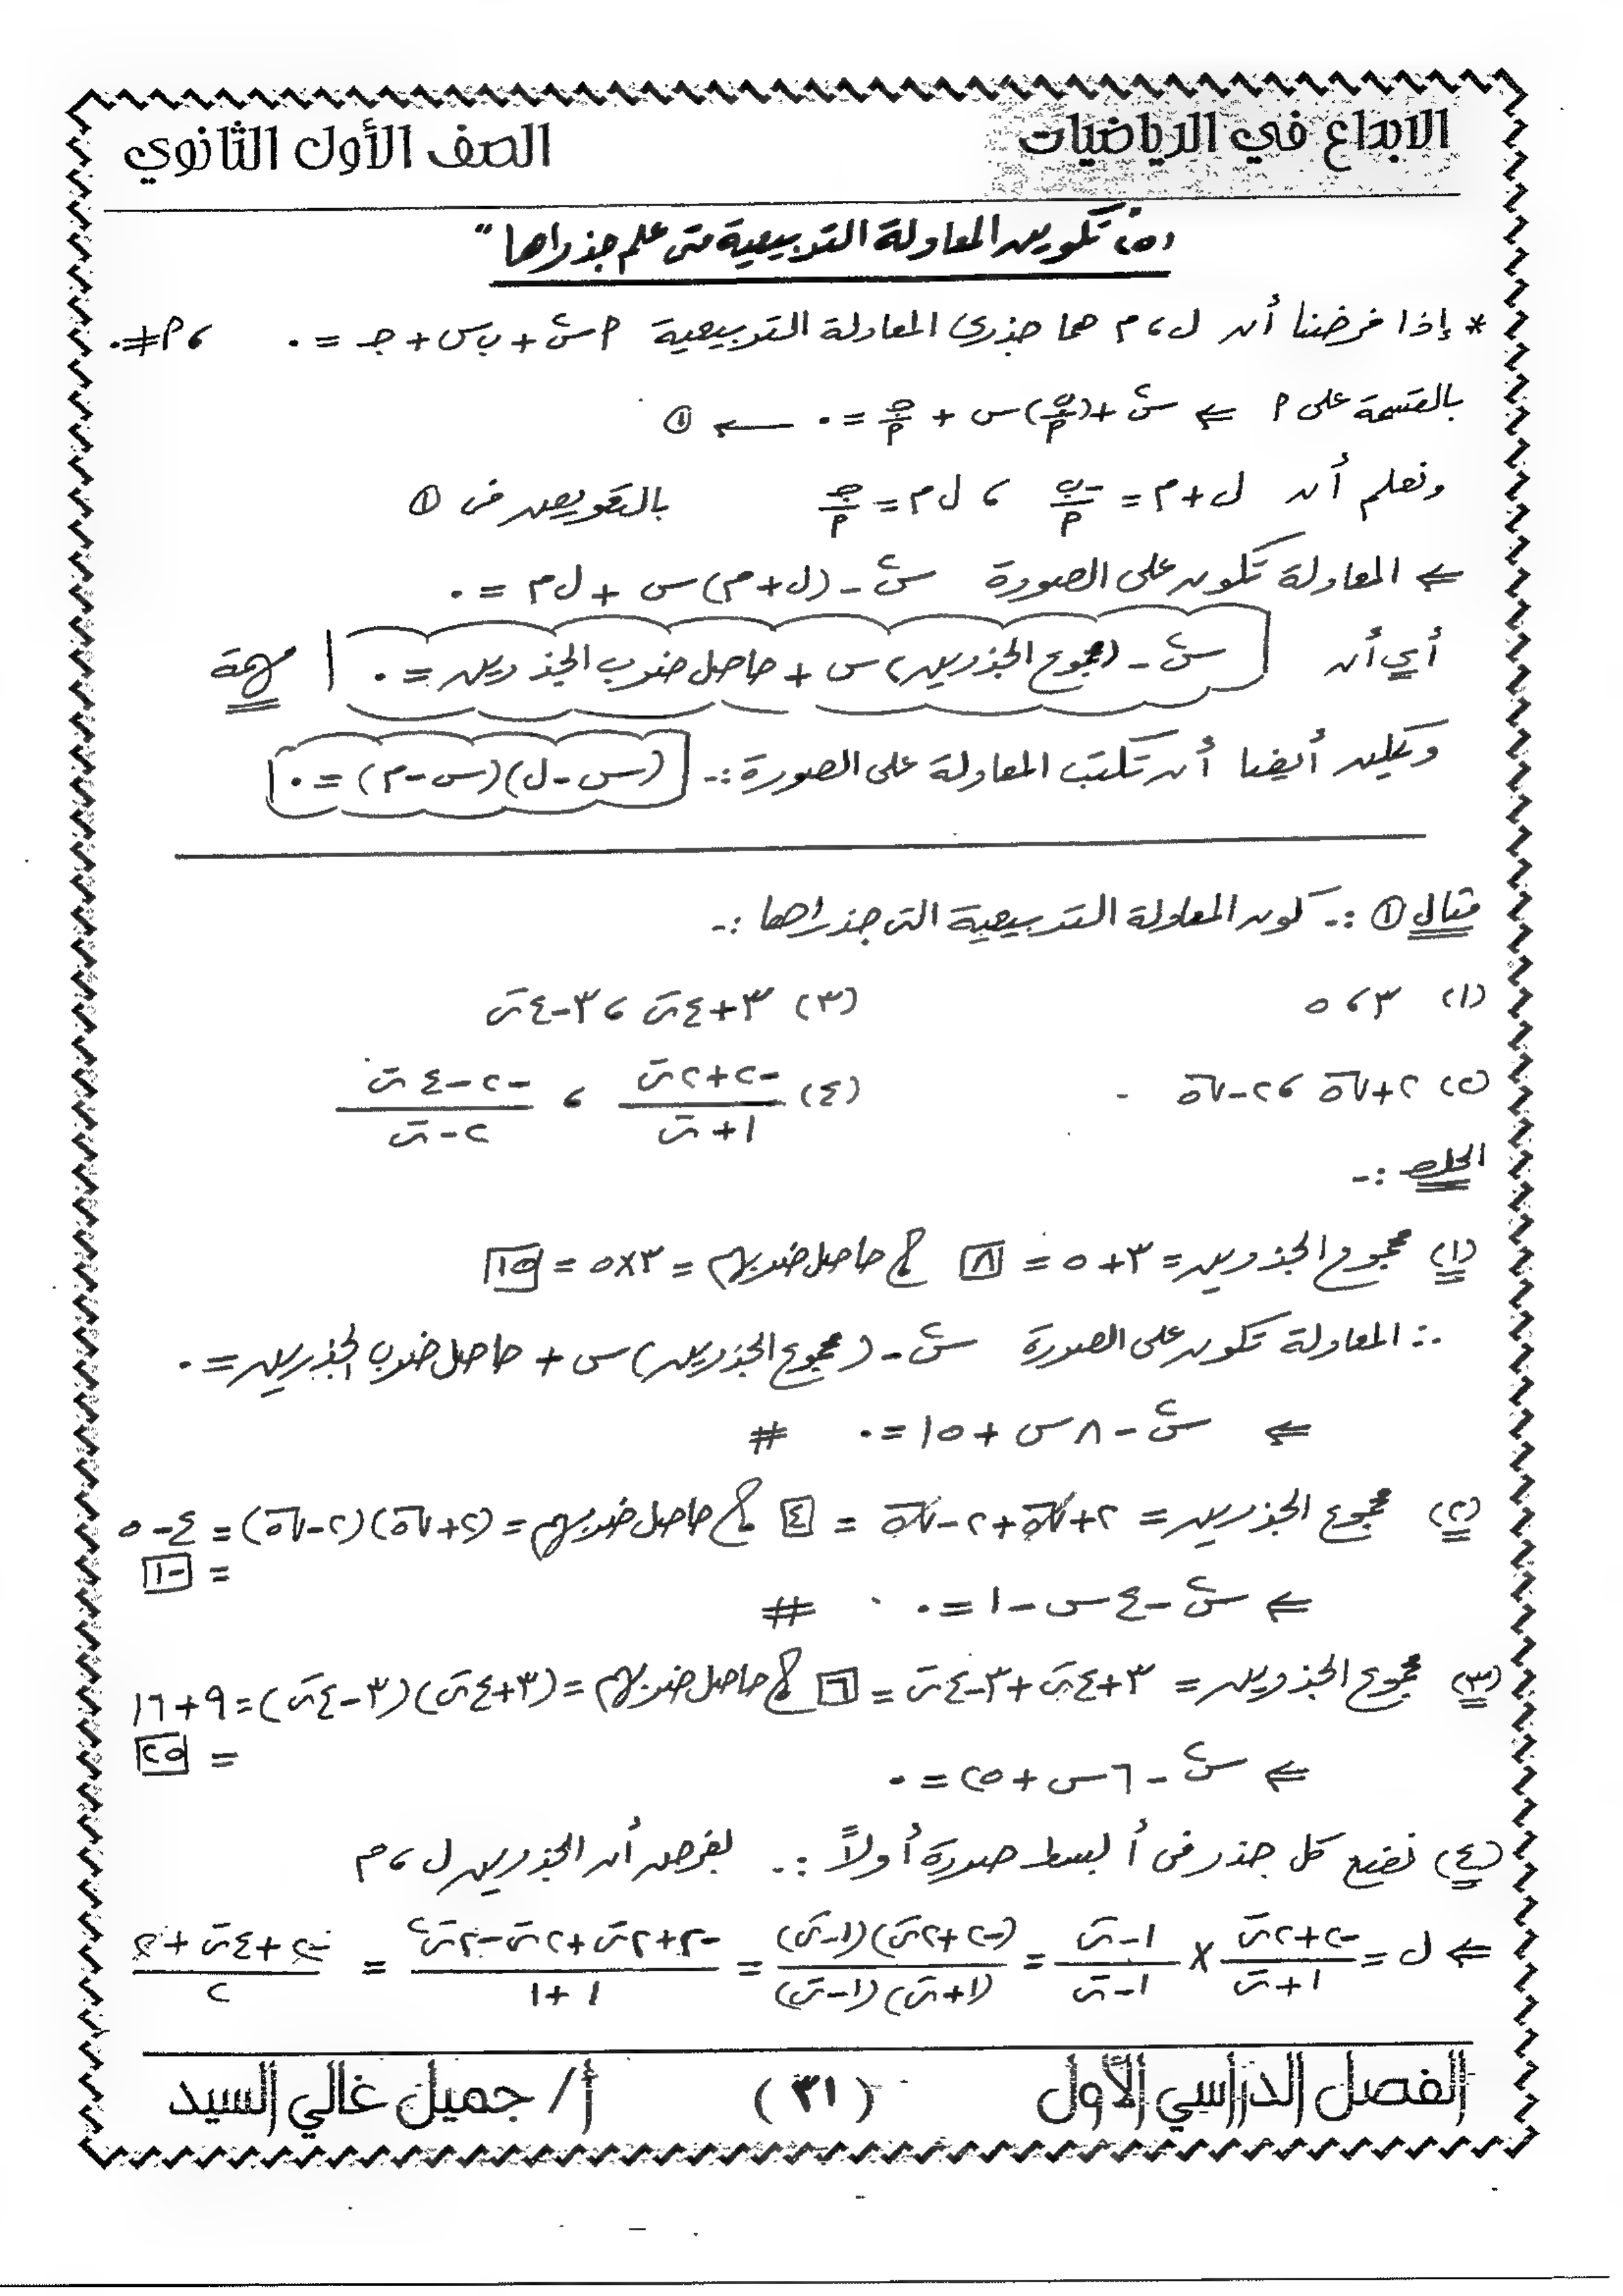 الابداع في الرياضيات
الصف الأول الثانوي
(٥) تكوين المعادلة التربيعية متى علم جذراها"
* إذا فرضنا أن ل ، م هما جذرى المعادلة التربيعية م س٢ + ب س + جـ = ٠ ، م ≠ ٠
بالقسمة على م ⇐ س٢ + (ب/م) س + جـ/م = ٠ ← ①
ونعلم أن ل + م = -ب/م ، ل م = جـ/م بالتعويض فى ①
⇐ المعادلة تكون على الصورة س٢ - (ل + م) س + ل م = ٠
أي أن س٢ - (مجموع الجذرين) س + حاصل ضرب الجذرين = ٠ مهمة
ويمكن أيضا أن تكتب المعادلة على الصورة :- (س - ل)(س - م) = ٠
مثال ① :- كون المعادلة التربيعية التى جذراها :-
(١) ٣ ، ٥
(٣) ٣ + ٤ت ، ٣ - ٤ت
(٢) ٢ + √٥ ، ٢ - √٥
(٤) (-٢ + ٢ت)/(١ + ت) ، (-٢ - ٤ت)/(٢ - ت)
الحل :-
(١) مجموع الجذرين = ٣ + ٥ = ٨ ، حاصل ضربهم = ٣ × ٥ = ١٥
∴ المعادلة تكون على الصورة س٢ - (مجموع الجذرين) س + حاصل ضرب الجذرين = ٠
⇐ س٢ - ٨ س + ١٥ = ٠ #
(٢) مجموع الجذرين = ٢ + √٥ + ٢ - √٥ = ٤ ، حاصل ضربهم = (٢ + √٥)(٢ - √٥) = ٤ - ٥
= -١
⇐ س٢ - ٤ س - ١ = ٠ #
(٣) مجموع الجذرين = ٣ + ٤ت + ٣ - ٤ت = ٦ ، حاصل ضربهم = (٣ + ٤ت)(٣ - ٤ت) = ٩ + ١٦
= ٢٥
⇐ س٢ - ٦ س + ٢٥ = ٠
(٤) نضع كل جذر فى أبسط صورة أولاً :- بفرض أن الجذرين ل ، م
⇐ ل = (-٢ + ٢ت)/(١ + ت) × (١ - ت)/(١ - ت) = (-٢ + ٢ت)(١ - ت)/(١ + ت)(١ - ت) = (-٢ + ٢ت + ٢ت - ٢ت٢)/(١ + ١) = (-٢ + ٤ت + ٢)/٢
الفصل الدراسي الأول
( ٣١ )
أ/ جميل غالي السيد